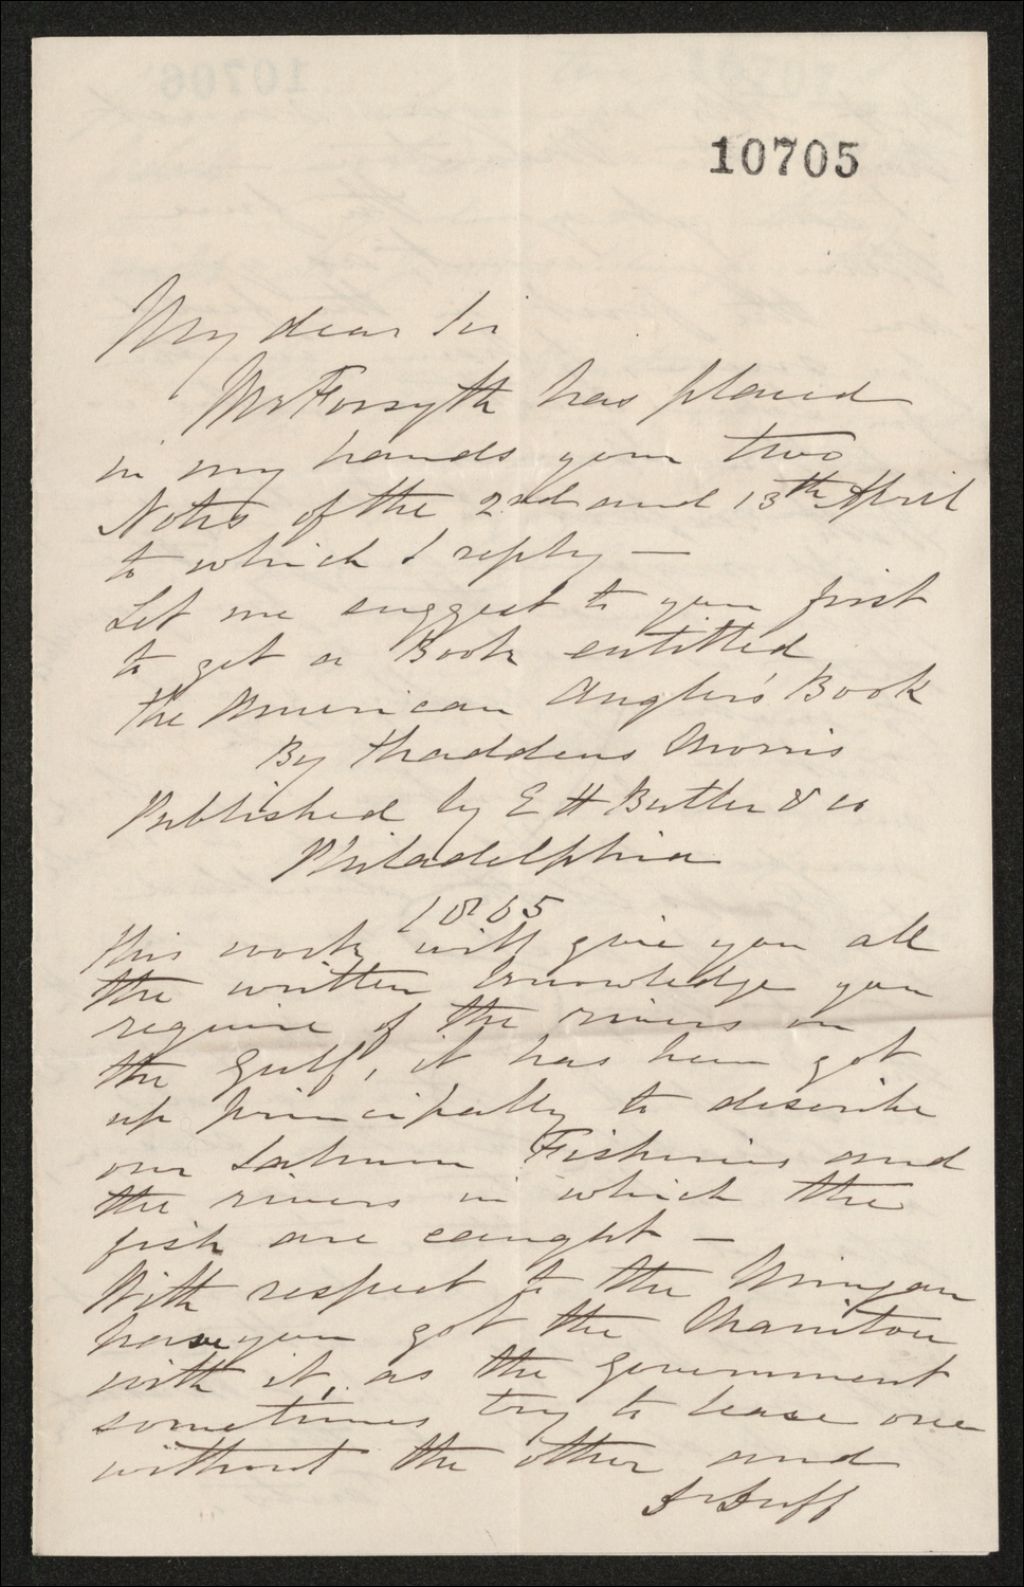 10705
My dear Sir
Mr Forsyth has placed
in my hands your two
Notes of the 2nd and 13th April
to which I reply —
Let me suggest to you first
to get a Book entitled
the American Angler's Book
By Thaddeus Morris
Published by E H Butler & co
Philadelphia
1865
this work will give you all
the written knowledge you
require of the rivers on
the Gulf, it has been got
up principally to describe
our Salmon Fisheries and
the rivers in which the
fish are caught —
With respect to the Mingan
have you got the Manitou
with it, as the Government
sometimes try to lease one
without the other and